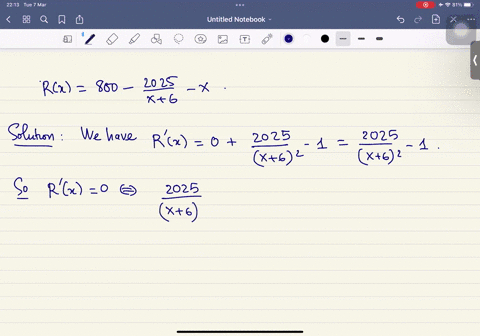 22:13 Tue 7 Mar
31%
Untitled Notebook
R(x) = 800 - 2025/(x+6) - x .
Solution : We have R'(x) = 0 + 2025/(x+6)² - 1 = 2025/(x+6)² - 1 .
So R'(x) = 0 ⇔ 2025/(x+6)